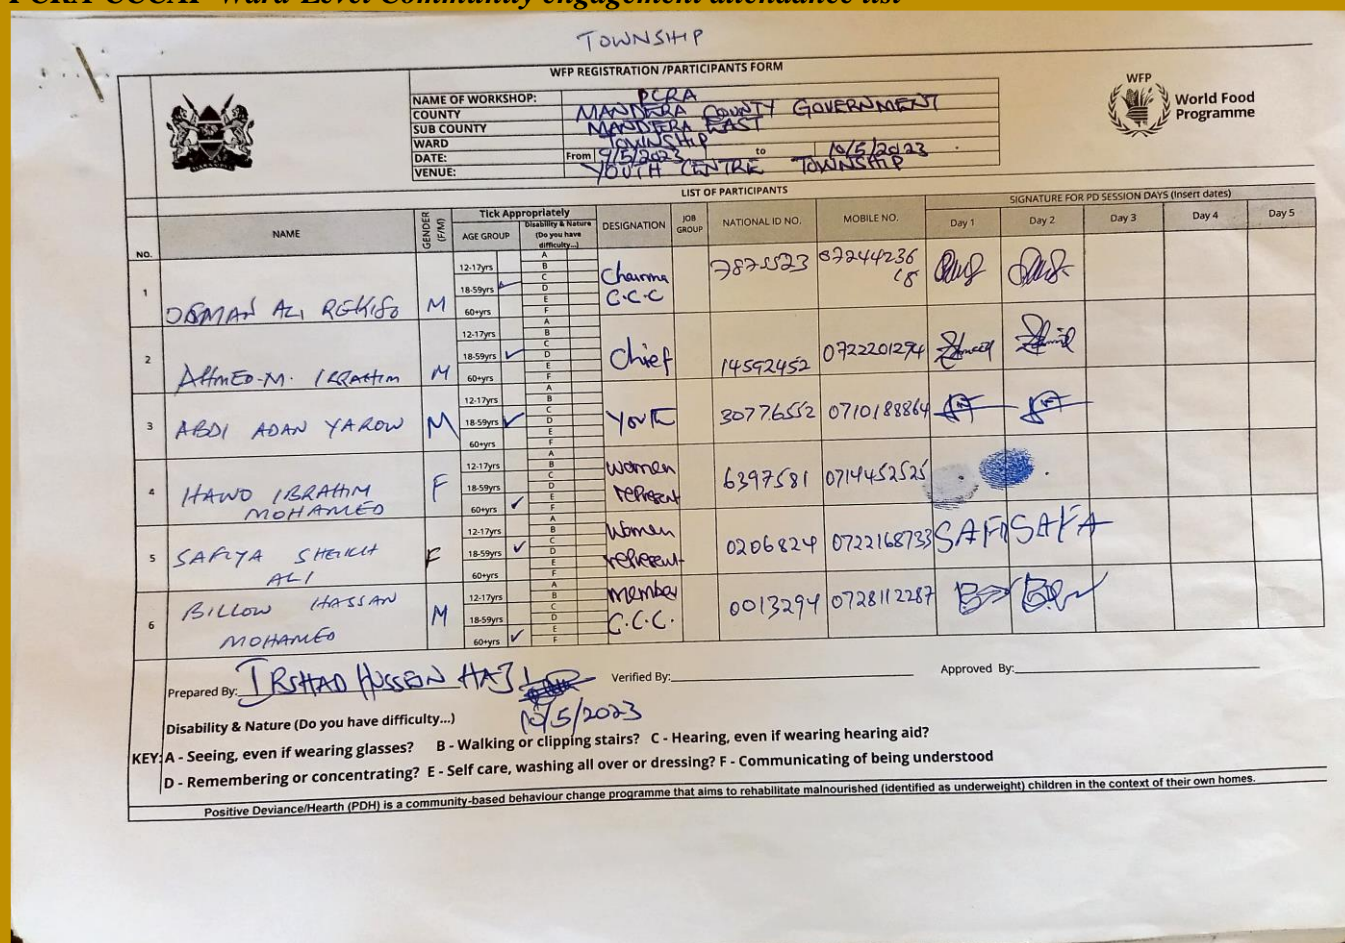 PCRA CCCAP Ward-Level Community engagement attendance list
TOWNSHIP
WFP REGISTRATION /PARTICIPANTS FORM
WFP
World Food
Programme
NAME OF WORKSHOP: PCRA
COUNTY MANDERA COUNTY GOVERNMENT
SUB COUNTY MANDERA EAST
WARD TOWNSHIP
DATE: From 9/5/2023 to 10/5/2023
VENUE: YOUTH CENTRE TOWNSHIP
LIST OF PARTICIPANTS
NO. NAME GENDER (F/M) Tick Appropriately AGE GROUP Disability & Nature (Do you have difficulty...) DESIGNATION JOB GROUP NATIONAL ID NO. MOBILE NO. SIGNATURE FOR PD SESSION DAYS (Insert dates) Day 1 Day 2 Day 3 Day 4 Day 5
1 OSMAN ALI M 12-17yrs 18-59yrs 60+yrs A B C D E F Chairma C.C.C 07244236
2 AHMED.M. IBRAHIM M 12-17yrs 18-59yrs 60+yrs A B C D E F Chief 14592452 0722201294
3 ABDI ADAN YAROW M 12-17yrs 18-59yrs 60+yrs A B C D E F 30776552 0710188864
4 HAWO IBRAHIM MOHAMED F 12-17yrs 18-59yrs 60+yrs A B C D E F Women represent 6397581 0714452525
5 SAFIYA SHEIKH ALI F 12-17yrs 18-59yrs 60+yrs A B C D E F Women represent 0206824 0722168733 SAFI SAFA
6 BILLOW HASSAN MOHAMED M 12-17yrs 18-59yrs 60+yrs A B C D E F member C.C.C. 0013294 0728112287
Prepared By: IRSHAD HUSSEIN HAJI Verified By: Approved By:
10/5/2023
Disability & Nature (Do you have difficulty...)
KEY: A - Seeing, even if wearing glasses? B - Walking or clipping stairs? C - Hearing, even if wearing hearing aid?
D - Remembering or concentrating? E - Self care, washing all over or dressing? F - Communicating of being understood
Positive Deviance/Hearth (PDH) is a community-based behaviour change programme that aims to rehabilitate malnourished (identified as underweight) children in the context of their own homes.